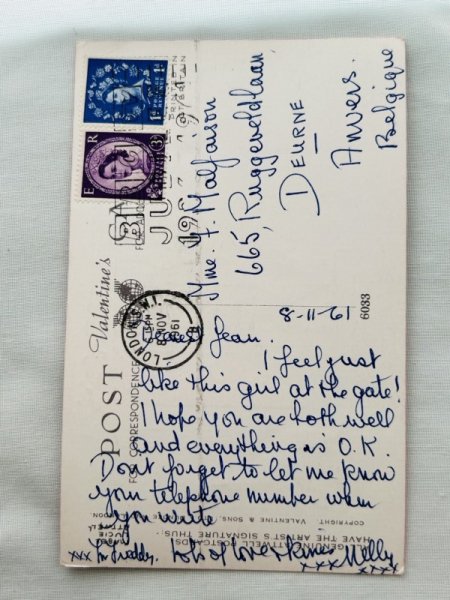 POST
Valentine's
FOR CORRESPONDENCE
E R
3D
1D
LONDON S.W.1.
8 NOV
1961
Mme. F. Malfaison
665, Ruggeveldlaan
DEURNE
Anvers.
Belgique
8-11-61
6033
Dearest Jean.
I feel just
like this girl at the gate!
I hope you are both well
and everything is O.K.
Don't forget to let me know
your telephone number when
you write
Lots of love & kisses Nelly
xxx for Freddy.
xxx xxxx
GENUINE ATTWELL POSTCARDS
HAVE THE ARTIST'S SIGNATURE THUS:-
COPYRIGHT. VALENTINE & SONS,